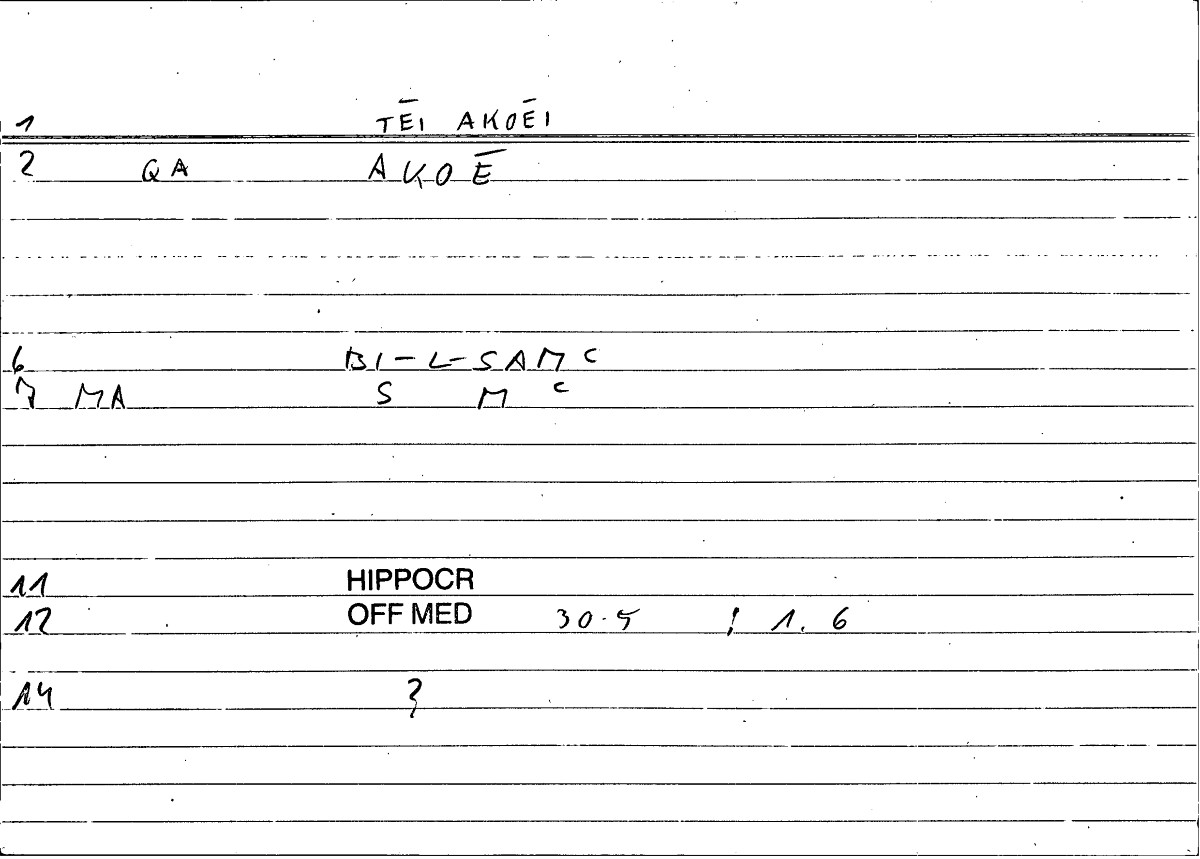 1 TĒI AKOĒI
2 QA AKOĒ
6 BI-L-SAMʿ
7 MA S M ʿ
11 HIPPOCR
12 OFF MED 30.5 ; 1. 6
14 ?